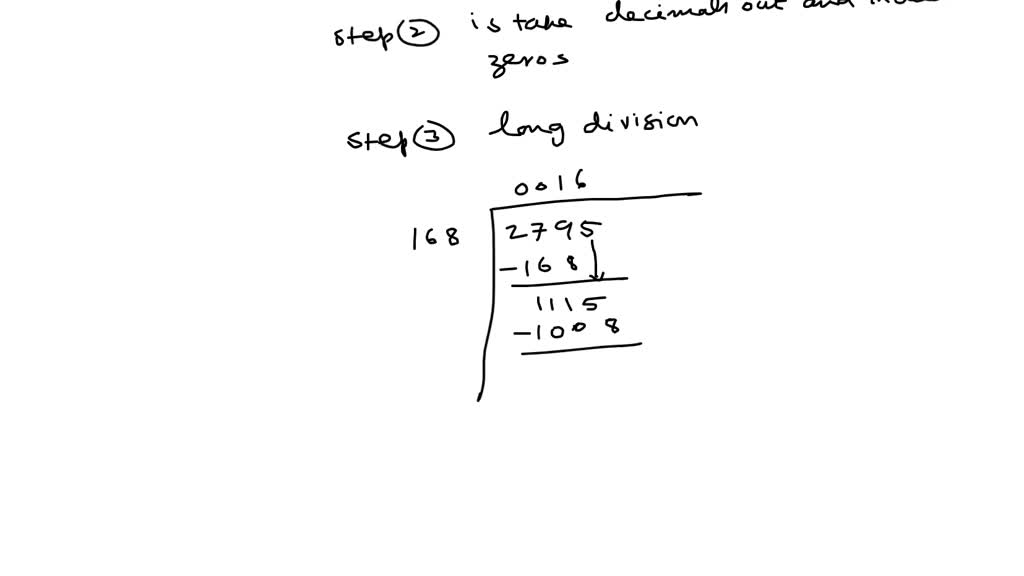 step (2) is take decimals out and
zeros
step (3) long division
0016
168 2795
-168
1115
-1008